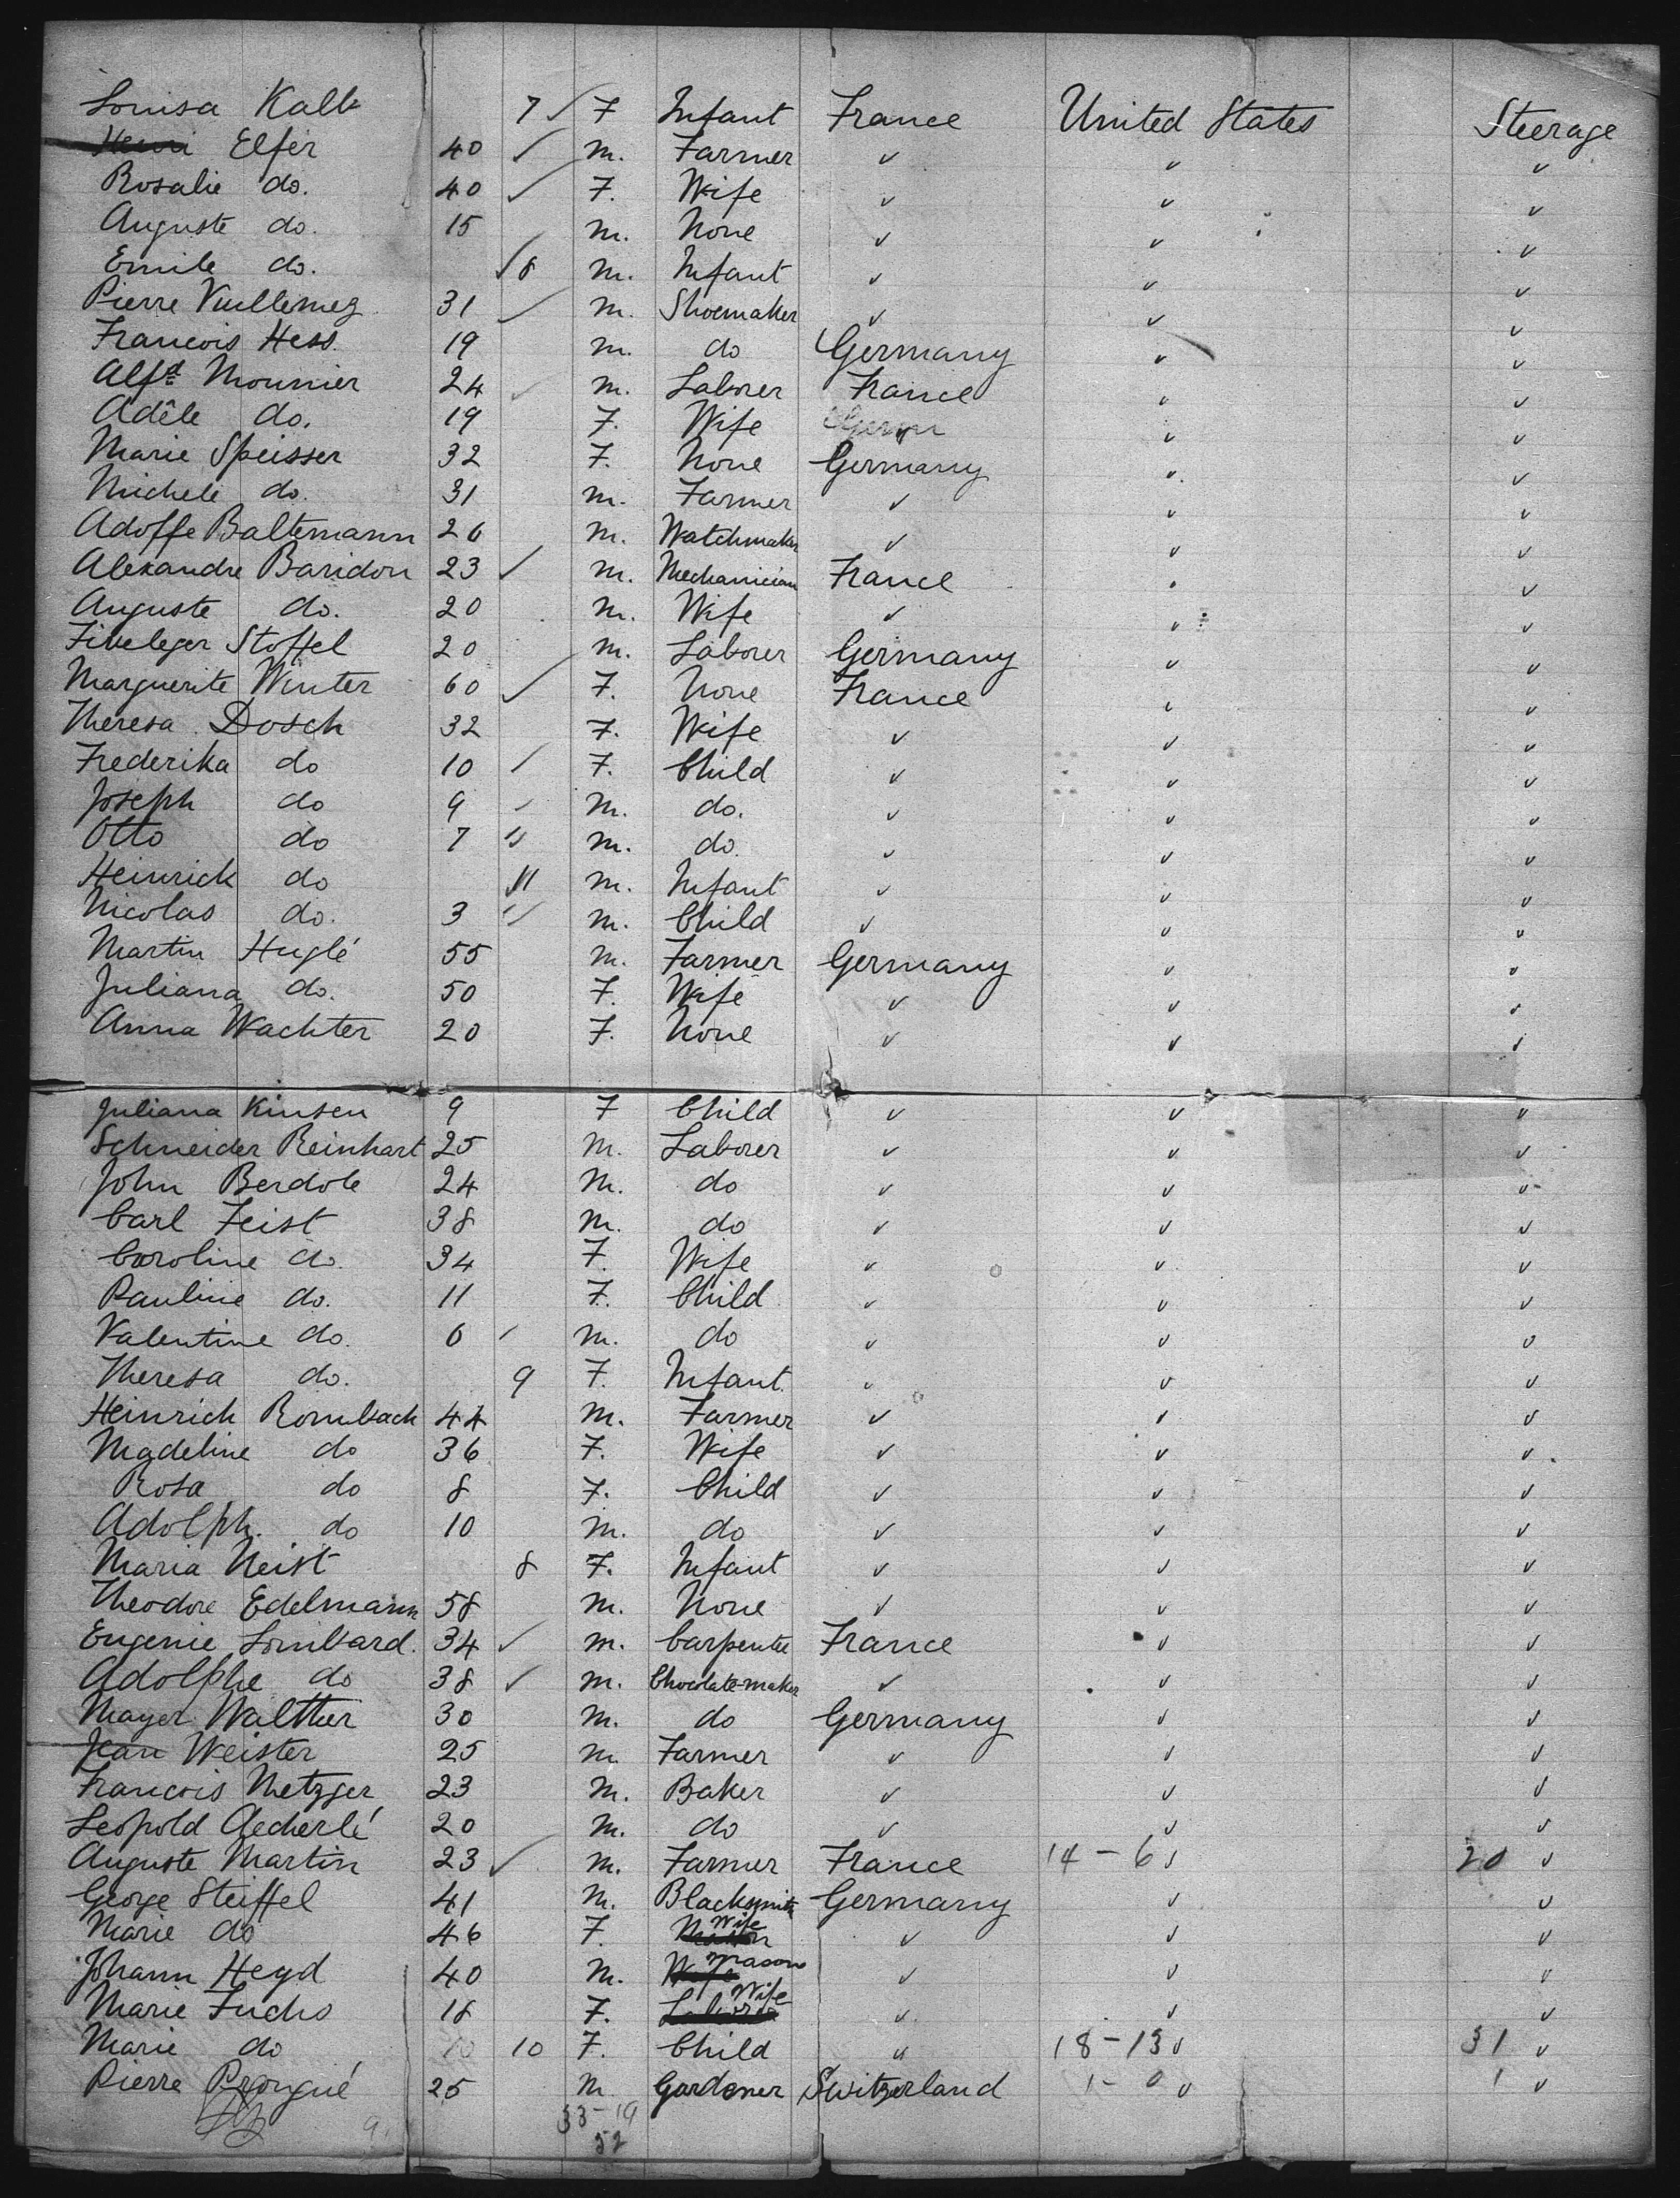 Louisa Kalb 7 ✓ F Infant France United States Steerage
Henri Elfer 40 ✓ m. Farmer ✓ ✓ ✓
Rosalie do. 40 ✓ F. Wife ✓ ✓ ✓
Auguste do. 15 m. None ✓ ✓ ✓
Emile do. ✓ 8 m. Infant ✓ ✓ ✓
Pierre Vuillemez 31 ✓ m. Shoemaker ✓ ✓ ✓
Francois Hess 19 m. do Germany ✓ ✓
Alfd Mounier 24 ✓ m. Laborer France ✓ ✓
Adêle do. 19 F. Wife ✓ ✓ ✓
Marie Speisser 32 F. None Germany ✓ ✓
Michele do. 31 m. Farmer ✓ ✓ ✓
Adoffe Baltemann 26 m. Watchmaker ✓ ✓ ✓
Alexandre Baridon 23 ✓ m. Mechanician France ✓ ✓
Auguste do. 20 m. Wife ✓ ✓ ✓
Stoffel 20 m. Laborer Germany ✓ ✓
Marguerite Winter 60 ✓ F. None France ✓ ✓
Theresa Dosch 32 F. Wife ✓ ✓ ✓
Frederika do 10 ✓ F. Child ✓ ✓ ✓
Joseph do 9 ✓ m. do. ✓ ✓ ✓
Otto do 7 ✓ m. do. ✓ ✓ ✓
Heinrick do 11 m. Infant ✓ ✓ ✓
Nicolas do. 3 ✓ m. Child ✓ ✓ ✓
Martin Huglé 55 m. Farmer Germany ✓ ✓
Juliana do. 50 F. Wife ✓ ✓ ✓
Anna Wachter 20 F. None ✓ ✓ ✓
Juliana Kinsen 9 F Child ✓ ✓ ✓
Schneider Reinhart 25 m. Laborer ✓ ✓ ✓
John Berdole 24 m. do ✓ ✓ ✓
Carl Feist 38 m. do ✓ ✓ ✓
Caroline do. 34 F. Wife ✓ ✓ ✓
Pauline do. 11 F. Child ✓ ✓ ✓
Valentine do. 6 ✓ m. do ✓ ✓ ✓
Theresa do. 9 F. Infant ✓ ✓ ✓
Heinrich Rombach 44 m. Farmer ✓ ✓ ✓
Madeline do 36 F. Wife ✓ ✓ ✓
Rosa do 8 F. Child ✓ ✓ ✓
Adolph. do 10 m. do ✓ ✓ ✓
Maria Neist 8 F. Infant ✓ ✓ ✓
Theodore Edelmann 58 m. None ✓ ✓ ✓
Eugenie Lombard. 34 ✓ m. Carpenter France ✓ ✓
Adolphe do 38 ✓ m. Chocolate-maker ✓ ✓ ✓
Mayer Walther 30 m. do Germany ✓ ✓
Jean Weister 25 m. Farmer ✓ ✓ ✓
Francois Metzger 23 m. Baker ✓ ✓ ✓
Leopold Aecherlé 20 m. do ✓ ✓ ✓
Auguste Martin 23 ✓ m. Farmer France 14 - 6 ✓ 20 ✓
George Steiffel 41 m. Blacksmith Germany ✓ ✓
Marie do 46 F. Wife ✓ ✓ ✓
Johann Heyd 40 m. mason ✓ ✓ ✓
Marie Fuchs 18 F. Laborer Wife ✓ ✓ ✓
Marie do 10 F. Child ✓ 18 - 13 ✓ 31 ✓
Pierre Prongué 25 m Gardener Switzerland 1 - 0 ✓ 1 ✓
33 - 19
52